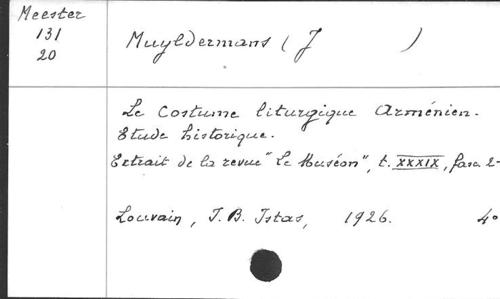 Meester
131
20
Muyldermans (J )
Le Costume liturgique Arménien.
Etude historique.
Extrait de la revue "Le Muséon", t. XXXIX, fasc. 2-
Louvain, J. B. Istas, 1926. 4°